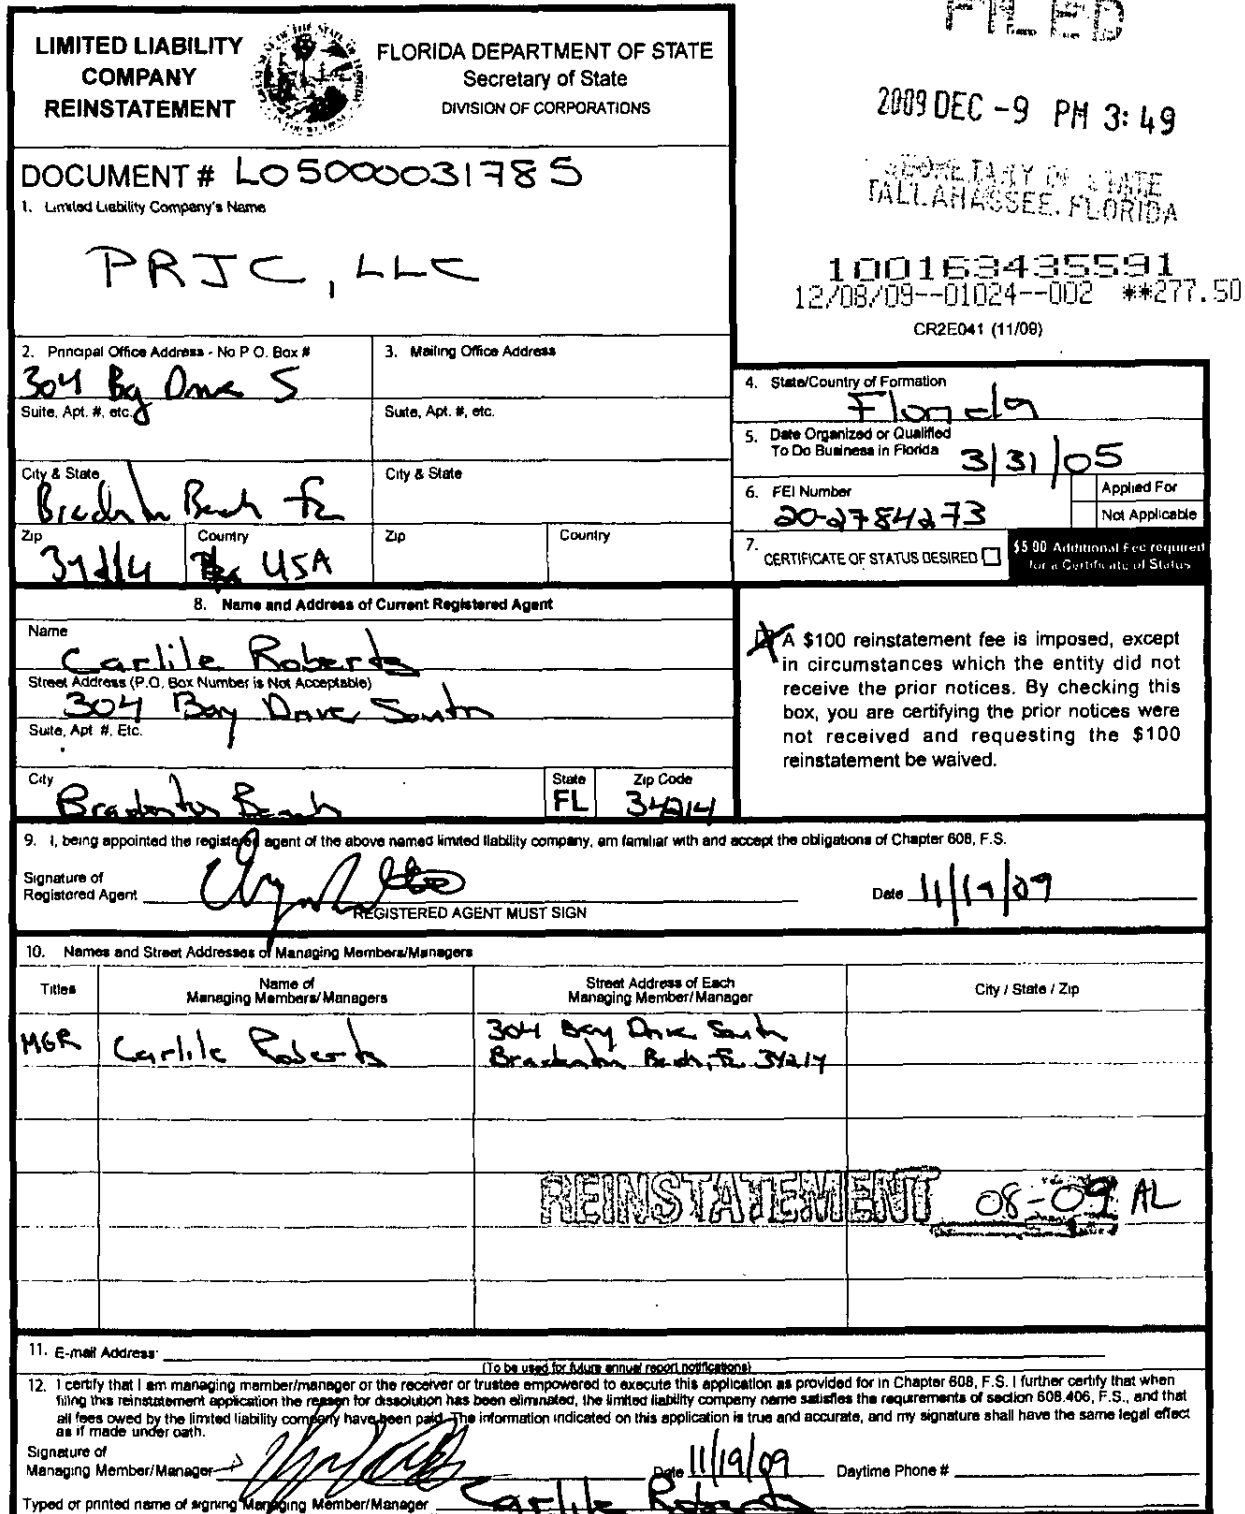 FILED
LIMITED LIABILITY
COMPANY
REINSTATEMENT
FLORIDA DEPARTMENT OF STATE
Secretary of State
DIVISION OF CORPORATIONS
2009 DEC -9 PM 3:49
SECRETARY OF STATE
TALLAHASSEE, FLORIDA
DOCUMENT # L05000031785
1. Limited Liability Company's Name
PRJC, LLC
100163435591
12/08/09--01024--002 **277.50
CR2E041 (11/09)
2. Principal Office Address - No P.O. Box #
304 Bay Drive S
Suite, Apt. #, etc.
City & State
Bradenton Beach FL
Zip
34214
Country
USA
3. Mailing Office Address
Suite, Apt. #, etc.
City & State
Zip
Country
4. State/Country of Formation
Florida
5. Date Organized or Qualified
To Do Business in Florida
3/31/05
6. FEI Number
20-2784273
Applied For
Not Applicable
7. CERTIFICATE OF STATUS DESIRED
$5.00 Additional Fee required
for a Certificate of Status
8. Name and Address of Current Registered Agent
Name
Carlile Roberts
Street Address (P.O. Box Number is Not Acceptable)
304 Bay Drive South
Suite, Apt #, Etc.
City
Bradenton Beach
State
FL
Zip Code
34214
A $100 reinstatement fee is imposed, except
in circumstances which the entity did not
receive the prior notices. By checking this
box, you are certifying the prior notices were
not received and requesting the $100
reinstatement be waived.
9. I, being appointed the registered agent of the above named limited liability company, am familiar with and accept the obligations of Chapter 608, F.S.
Signature of
Registered Agent
REGISTERED AGENT MUST SIGN
Date 11/19/09
10. Names and Street Addresses of Managing Members/Managers
Titles
Name of
Managing Members/Managers
Street Address of Each
Managing Member/Manager
City / State / Zip
MGR
Carlile Roberts
304 Bay Drive South
Bradenton Beach, FL 34214
REINSTATEMENT 08-09 AL
11. E-mail Address:
(To be used for future annual report notifications)
12. I certify that I am managing member/manager or the receiver or trustee empowered to execute this application as provided for in Chapter 608, F.S. I further certify that when
filing this reinstatement application the reason for dissolution has been eliminated, the limited liability company name satisfies the requirements of section 608.406, F.S., and that
all fees owed by the limited liability company have been paid. The information indicated on this application is true and accurate, and my signature shall have the same legal effect
as if made under oath.
Signature of
Managing Member/Manager
Date 11/19/09
Daytime Phone #
Typed or printed name of signing Managing Member/Manager Carlile Roberts